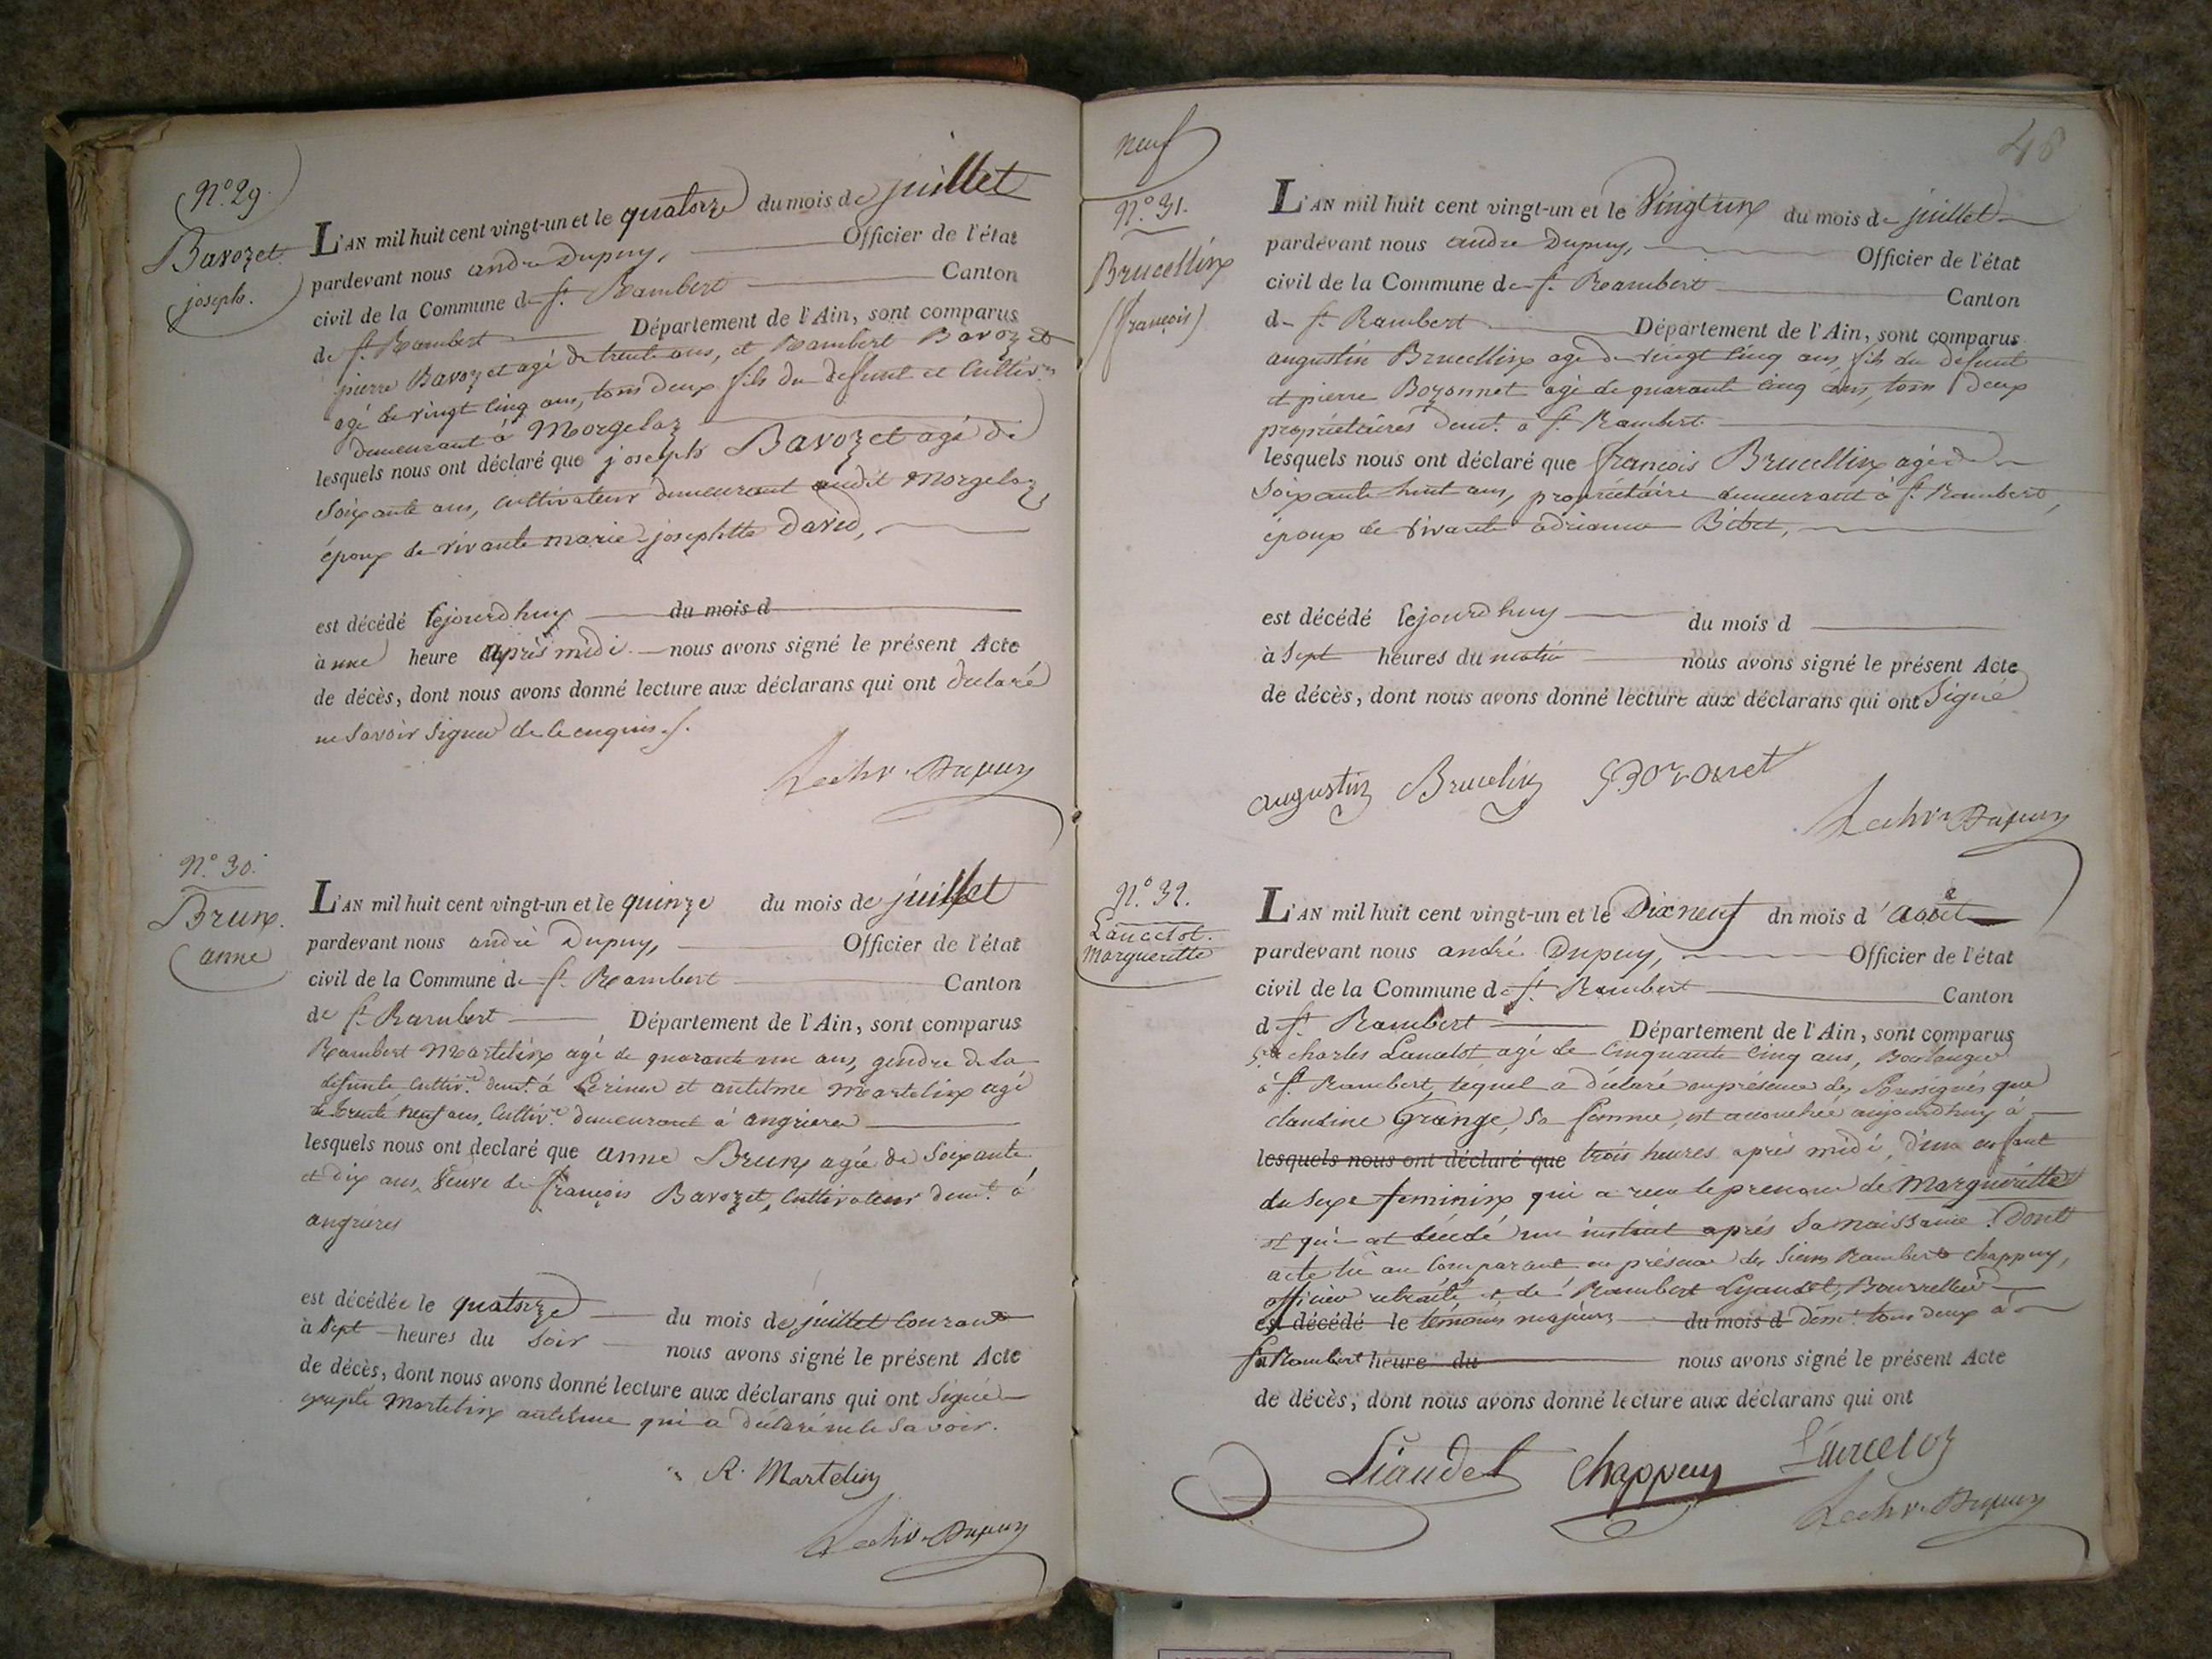 N.o 29.
Bavozet
joseph.
L'AN mil huit cent vingt-un et le quatorze du mois de juillet
pardevant nous andré Dupuy, Officier de l'état
civil de la Commune de St. Rambert Canton
de St. Rambert Département de l'Ain, sont comparus
pierre Bavozet agé de trente ans, et Rambert Bavozet
agé de vingt cinq ans, tous deux fils du defunt et Cultiv.rs
demeurant à Morgelaz
lesquels nous ont déclaré que joseph Bavozet agé de
soixante ans, cultivateur demeurant audit Morgelaz,
époux de vivante marie josephtte David,
est décédé cejourdhuy du mois d
à une heure après midi nous avons signé le présent Acte
de décès, dont nous avons donné lecture aux déclarans qui ont declaré
ne savoir signer de ce enquis
Dupuy
N.o 30.
Brun
anne
L'AN mil huit cent vingt-un et le quinze du mois de juillet
pardevant nous andré Dupuy, Officier de l'état
civil de la Commune de St. Rambert Canton
de St. Rambert Département de l'Ain, sont comparus
Rambert Martelin agé de quarante un ans, gendre de la
defunte, cultiv.r demt. à Serrieu et antelme Martelin agé
de trente neuf ans, Cultiv.r demeurant à angrieres
lesquels nous ont declaré que anne Brun agée de soixante
et dix ans, veuve de françois Bavozet, Cultivateur demt. à
angrieres
est décédée le quatorze du mois de juillet courant
à sept heures du soir nous avons signé le présent Acte
de décès, dont nous avons donné lecture aux déclarans qui ont signé
excepté Martelin antelme qui a déclaré ne le savoir.
R. Martelin
Dupuy
neuf
48
N.o 31.
Brucellin
(françois)
L'AN mil huit cent vingt-un et le vingt un du mois de juillet
pardevant nous andre Dupuy, Officier de l'état
civil de la Commune de St. Rambert Canton
de St. Rambert Département de l'Ain, sont comparus
augustin Brucellin agé de vingt cinq ans, fils du defunt
et pierre Bozonnet agé de quarante cinq ans, tous deux
propriétaires demt. à St. Rambert
lesquels nous ont déclaré que françois Brucellin agé de
soixante huit ans, propriétaire demeurant à St. Rambert,
époux de vivante adrianne Bibet,
est décédé cejourdhuy du mois d
à sept heures du matin nous avons signé le présent Acte
de décès, dont nous avons donné lecture aux déclarans qui ont signé
augustin Brucelin Bozonet
Dupuy
N.o 32.
Lancelot
Margueritte
L'AN mil huit cent vingt-un et le Dix neuf du mois d'aout
pardevant nous andré Dupuy, Officier de l'état
civil de la Commune de St. Rambert Canton
d St. Rambert Département de l'Ain, sont comparus
Sr. charles Lancelot agé de cinquante cinq ans, Boulanger
à St. Rambert, lequel a déclaré en présence des soussignés que
claudine Grange, sa femme, est accouchée aujourdhuy à
lesquels nous ont déclaré que trois heures après midi, d'un enfant
du sexe feminin qui a reçu le prenom de Marguéritte
et qui est décédé un instant après sa naissance. Dont
acte lu au comparant en présence des sieurs Rambert chappuy,
officier retraité, et de Rambert Lyaudet, Bourrelier
est décédé le témoins majeurs du mois d demt. tous deux à
St. Rambert heure du nous avons signé le présent Acte
de décès, dont nous avons donné lecture aux déclarans qui ont
Liaudet Chappuy Lancelot
Dupuy